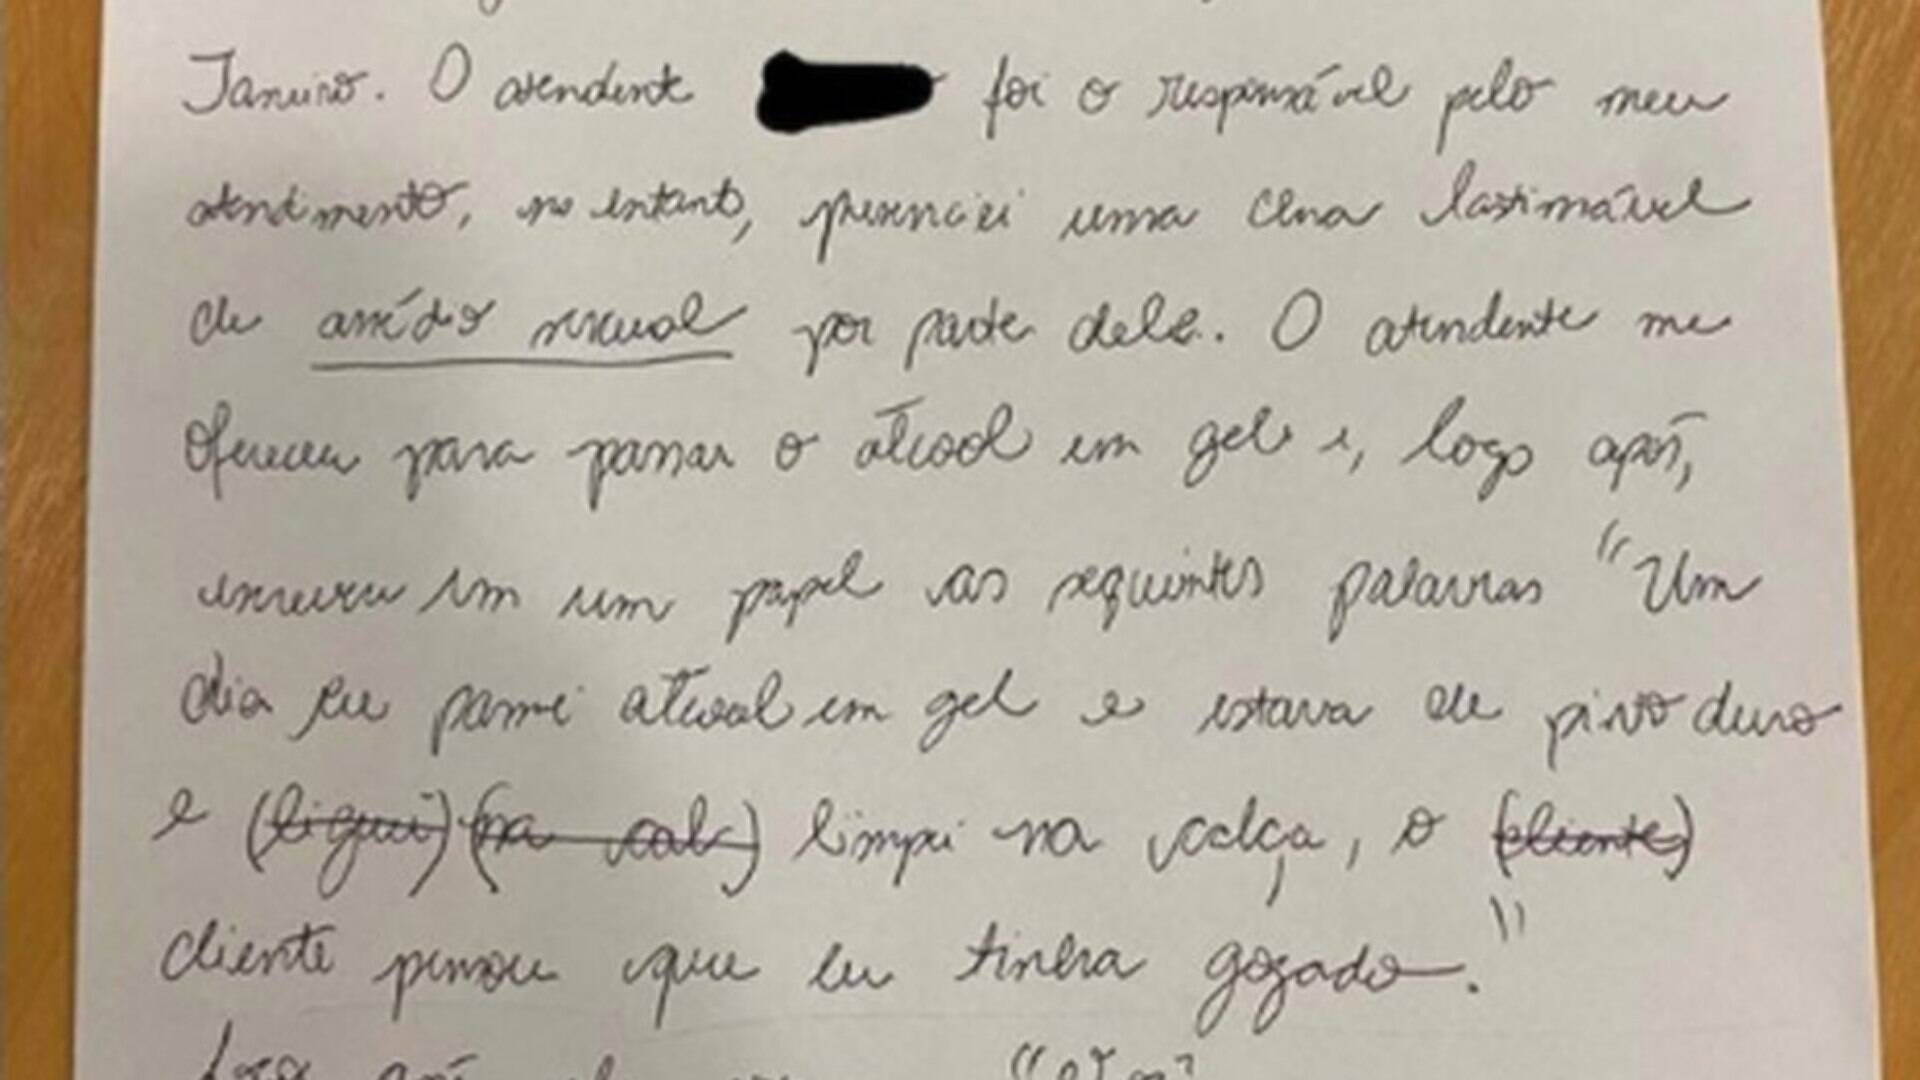 Janeiro. O atendente foi o responsável pelo meu
atendimento, no entanto, presenciei uma cena lastimável
de assédio sexual por parte dele. O atendente me
ofereceu para passar o álcool em gel e, logo após,
escreveu em um papel as seguintes palavras "Um
dia eu passei álcool em gel e estava de pivo duro
e (liguei) (na calc) limpei na calça, o (cliente)
cliente pensou que eu tinha gozado."